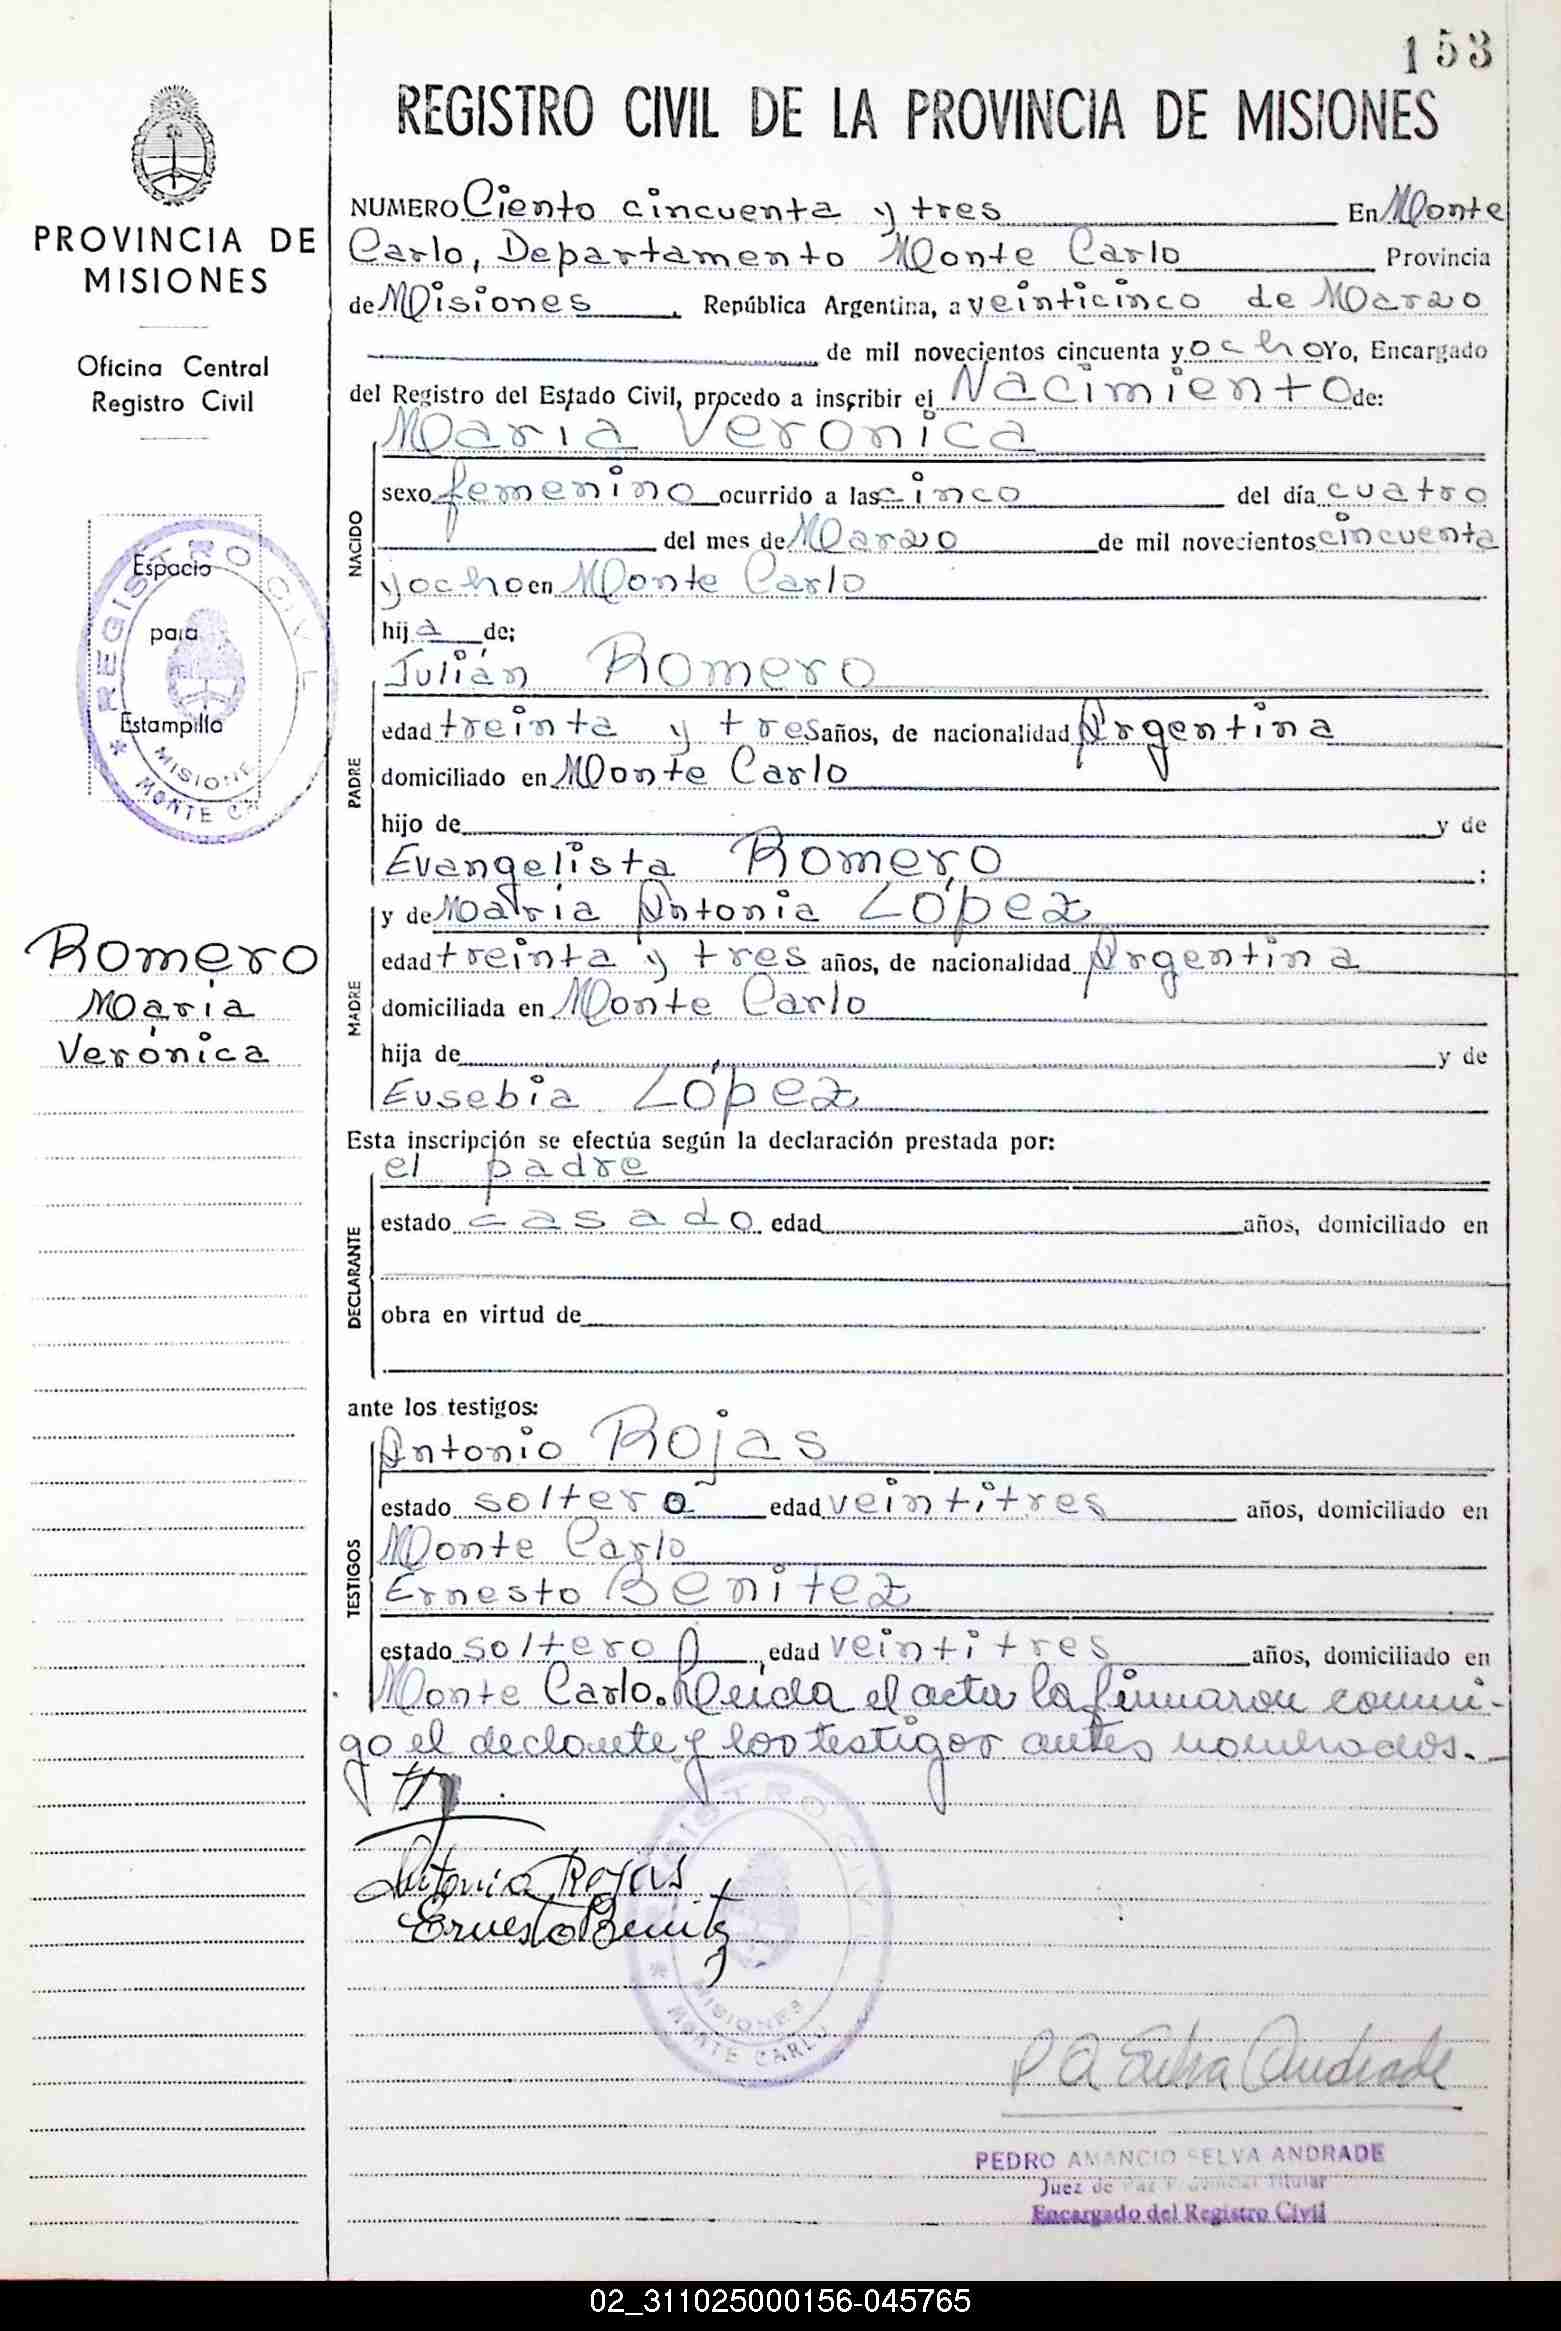 153
REGISTRO CIVIL DE LA PROVINCIA DE MISIONES
PROVINCIA DE
MISIONES
Oficina Central
Registro Civil
Espacio
para
Estampilla
REGISTRO CIVIL
MISIONES
* MONTE CA
Romero
María
Verónica
NUMERO Ciento cincuenta y tres En Monte
Carlo, Departamento Monte Carlo Provincia
de Misiones, República Argentina, a veinticinco de Marzo
de mil novecientos cincuenta y ocho Yo, Encargado
del Registro del Estado Civil, procedo a inscribir el Nacimiento de:
NACIDO
María Verónica
sexo femenino ocurrido a las cinco del día cuatro
del mes de Marzo de mil novecientos cincuenta
y ocho en Monte Carlo
hija de;
PADRE
Julián Romero
edad treinta y tres años, de nacionalidad Argentina
domiciliado en Monte Carlo
hijo de y de
Evangelista Romero;
MADRE
y de María Antonia López
edad treinta y tres años, de nacionalidad Argentina
domiciliada en Monte Carlo
hija de y de
Eusebia López
Esta inscripción se efectúa según la declaración prestada por:
DECLARANTE
el padre
estado casado edad años, domiciliado en
obra en virtud de
ante los testigos:
TESTIGOS
Antonio Rojas
estado soltero edad veintitres años, domiciliado en
Monte Carlo
Ernesto Benitez
estado soltero edad veintitres años, domiciliado en
Monte Carlo. Leida el acta la firmaron conmi-
go el declante y los testigos antes nombrados.-
Antonio Rojas
Ernesto Benitz
REGISTRO CIVIL
MISIONES
* MONTE CARLO
P A Selva Andrade
PEDRO AMANCIO SELVA ANDRADE
Juez de Paz Provincial Titular
Encargado del Registro Civil
02_311025000156-045765